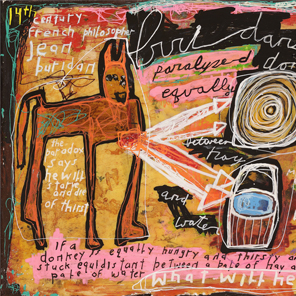 14th
century
french philosopher
jean
buridan
paralyzed
equally
between
hay
and
water
the
paradox
says
he will
starve
and die
of thirst
if a
donkey is equally hungry and thirsty an
stuck equidistant between a bale of hay a
pale of water
what will he